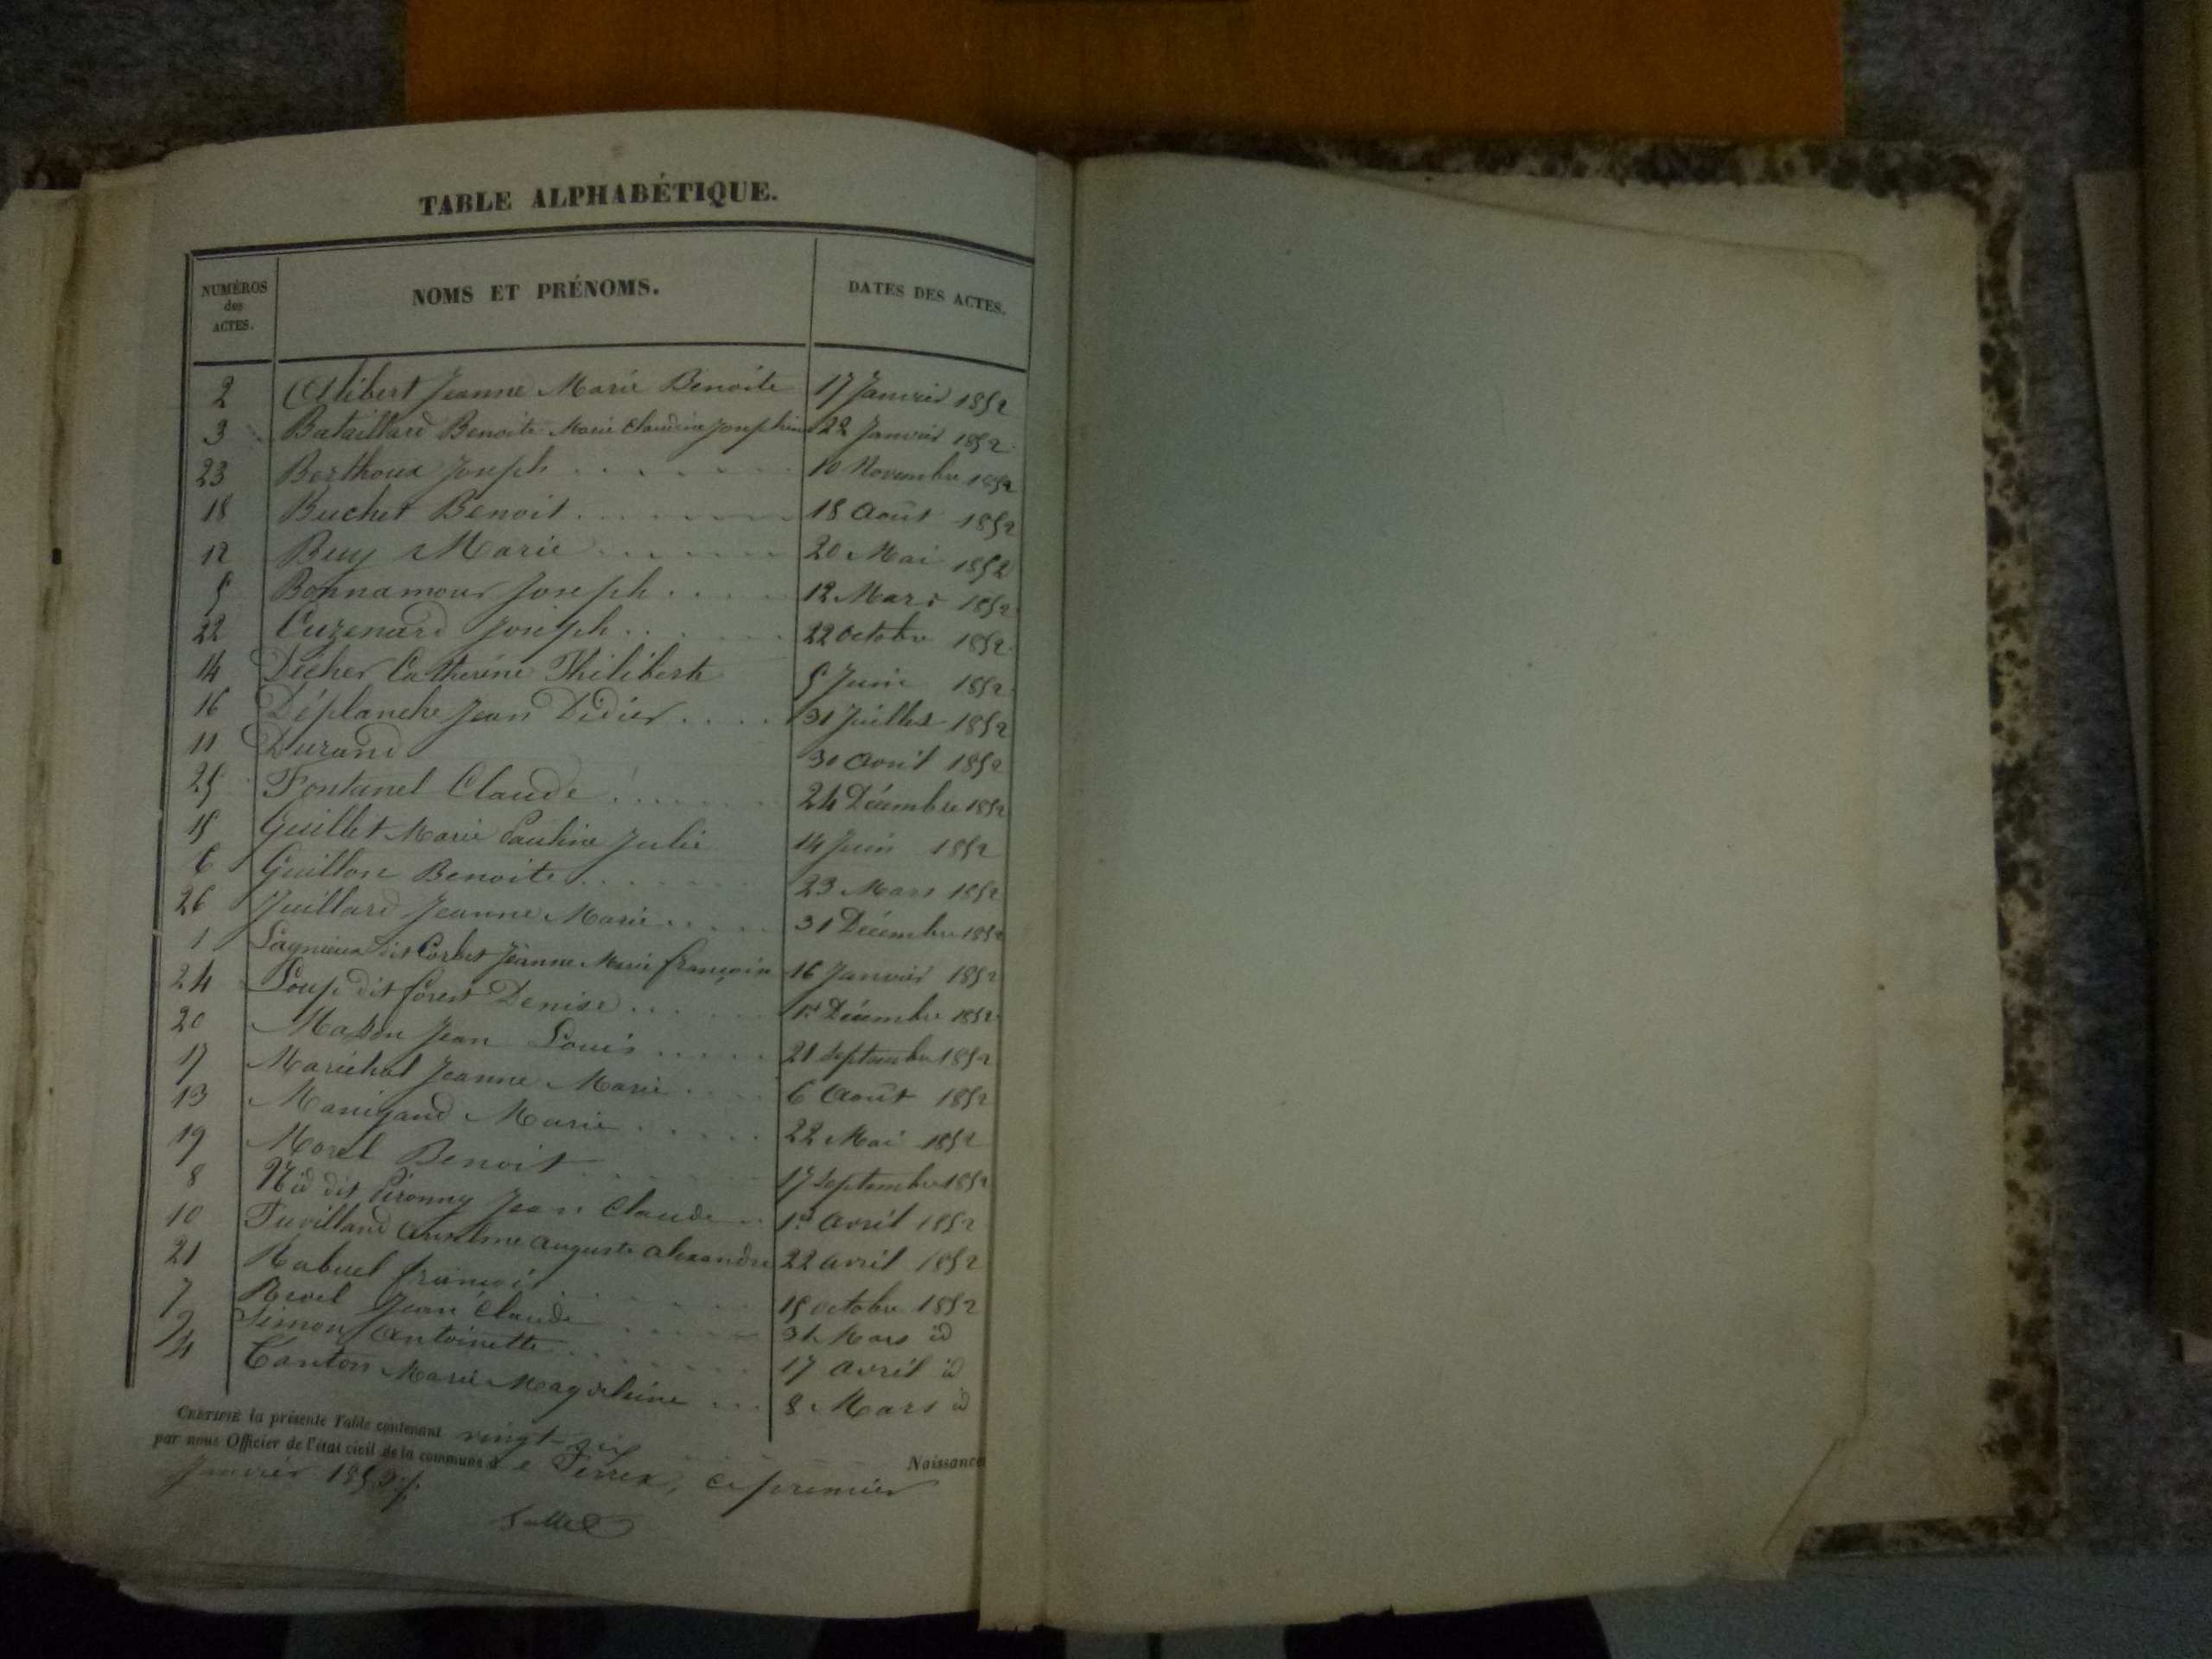 TABLE ALPHABÉTIQUE.
NUMÉROS des ACTES. NOMS ET PRÉNOMS. DATES DES ACTES.
2 Alibert Jeanne Marie Benoite 17 Janvier 1852
3 Bataillard Benoite Marie Claudine Josephine 22 Janvier 1852
23 Berthoux Joseph 10 Novembre 1852
18 Buchet Benoit 18 Août 1852
12 Buy Marie 20 Mai 1852
5 Bonnamour Joseph 12 Mars 1852
22 Cuzenard Joseph 22 Octobre 1852
14 Decher Catherine Philiberte 5 Juin 1852
16 Déplanche Jean Didier 31 Juillet 1852
11 Durand 30 Avril 1852
25 Fontanel Claude 24 Décembre 1852
15 Guillet Marie Pauline Julie 14 Juin 1852
6 Guillon Benoite 23 Mars 1852
26 Juillard Jeanne Marie 31 Décembre 1852
1 Lagnieux dit Corbet Jeanne Marie françoise 16 Janvier 1852
24 Loup dit forest Denise 1er Décembre 1852
20 Masson Jean Louis 21 Septembre 1852
17 Maréchal Jeanne Marie 6 Août 1852
13 Manigand Marie 22 Mai 1852
19 Morel Benoit 17 Septembre 1852
8 Nid dit Péronny Jean Claude 1er Avril 1852
10 Puvilland Anselme Auguste Alexandre 22 Avril 1852
21 Rabuel françois 15 Octobre 1852
7 Revel Jean Claude 31 Mars id
9 Simon Antoinette 17 Avril id
4 Tanton Marie Magdeleine 8 Mars id
CERTIFIÉ la présente Table contenant vingt-six Naissances
par nous Officier de l'état civil de la commune de Perrex, ce premier
Janvier 1853